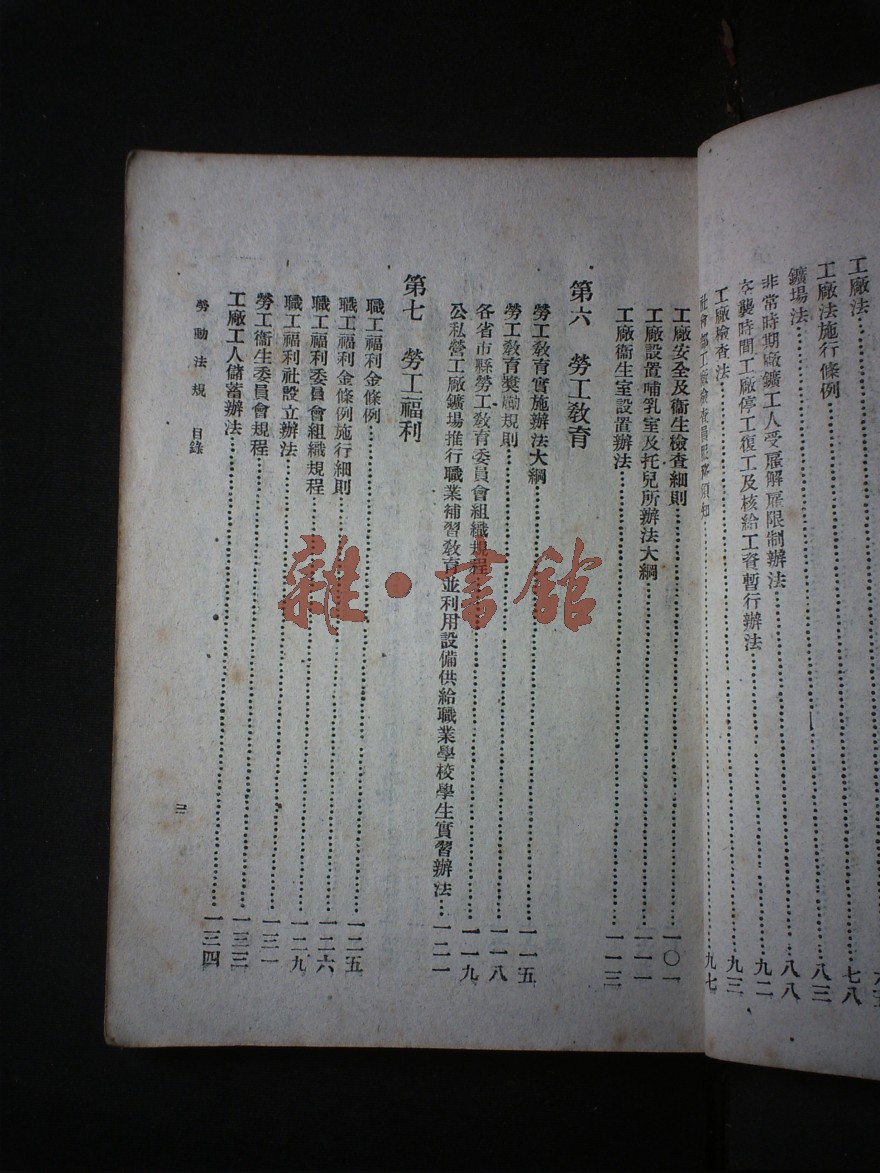 工廠法……
工廠法施行條例……七八
鑛場法……八三
非常時期廠鑛工人受雇解雇限制辦法……八八
空襲時間工廠停工復工及核給工資暫行辦法……九二
工廠檢查法……九三
社會部工廠檢查員服務須知……九七
工廠安全及衞生檢查細則……一〇一
工廠設置哺乳室及托兒所辦法大綱……一一一
工廠衞生室設置辦法……一一三
第六 勞工敎育
勞工敎育實施辦法大綱……一一五
勞工敎育獎勵規則……一一八
各省市縣勞工敎育委員會組織規程……一一九
公私營工廠鑛場推行職業補習敎育並利用設備供給職業學校學生實習辦法…一二一
第七 勞工福利
職工福利金條例……一二五
職工福利金條例施行細則……一二六
職工福利委員會組織規程……一二九
職工福利社設立辦法……一三一
勞工衞生委員會規程……一三三
工廠工人儲蓄辦法……一三四
勞動法規 目錄
三
雜·書館